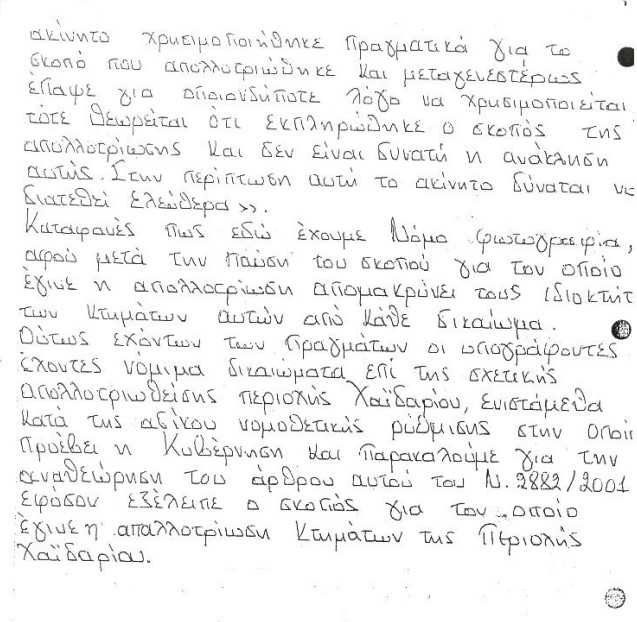 ακίνητο χρησιμοποιήθηκε πραγματικά για το
σκοπό που απαλλοτριώθηκε και μεταγενεστέρως
έπαψε για οποιονδήποτε λόγο να χρησιμοποιείται
τότε θεωρείται ότι εκπληρώθηκε ο σκοπός της
απαλλοτρίωσης και δεν είναι δυνατή η ανάκληση
αυτής. Στην περίπτωση αυτή το ακίνητο δύναται να
διατεθεί ελεύθερα >>.
Καταφανές πως εδώ έχουμε Νόμο φωτογραφία,
αφού μετά την παύση του σκοπού για τον οποίο
έγινε η απαλλοτρίωση απομακρύνει τους ιδιοκτήτ
των κτημάτων αυτών από κάθε δικαίωμα.
Ούτως εχόντων των πραγμάτων οι υπογράφοντες
έχοντες νόμιμα δικαιώματα επί της σχετικής
απαλλοτριωθείσης περιοχής Χαϊδαρίου, ενιστάμεθα
κατά της αδίκου νομοθετικής ρύθμισης στην οποί
προέβει η Κυβέρνηση και παρακαλούμε για την
αναθεώρηση του άρθρου αυτού του Ν. 2882/2001
εφόσον εξέλειπε ο σκοπός για τον οποίο
έγινε η απαλλοτρίωση κτημάτων της περιοχής
Χαϊδαρίου.